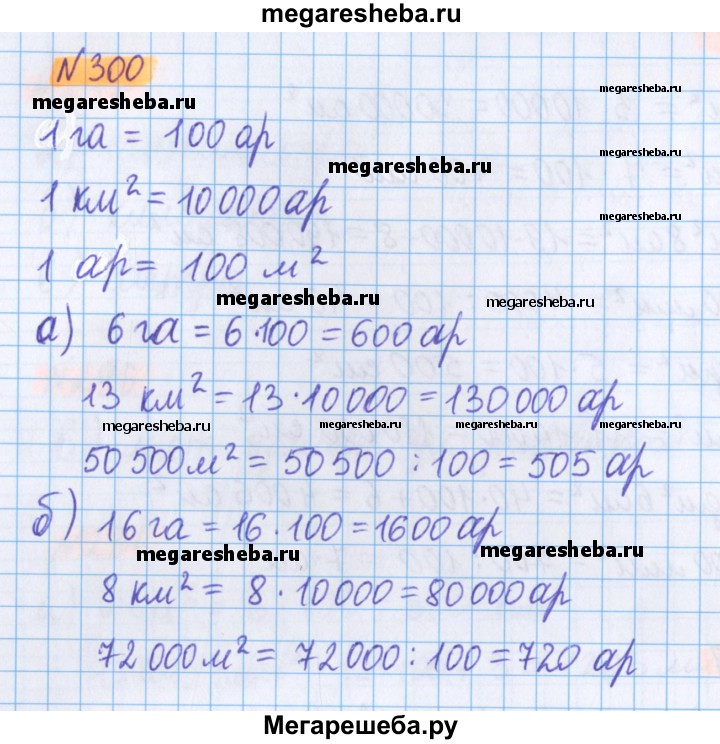 megaresheba.ru
N 300
megaresheba.ru
megaresheba.ru
1 га = 100 ар
megaresheba.ru
megaresheba.ru
1 км² = 10 000 ар
megaresheba.ru
1 ар = 100 м²
megaresheba.ru
megaresheba.ru
а) 6 га = 6·100 = 600 ар
13 км² = 13·10 000 = 130 000 ар
megaresheba.ru
megaresheba.ru
megaresheba.ru
50 500 м² = 50 500 : 100 = 505 ар
б) 16 га = 16·100 = 1600 ар
megaresheba.ru
megaresheba.ru
8 км² = 8·10 000 = 80 000 ар
72 000 м² = 72 000 : 100 = 720 ар
Мегарешеба.ру